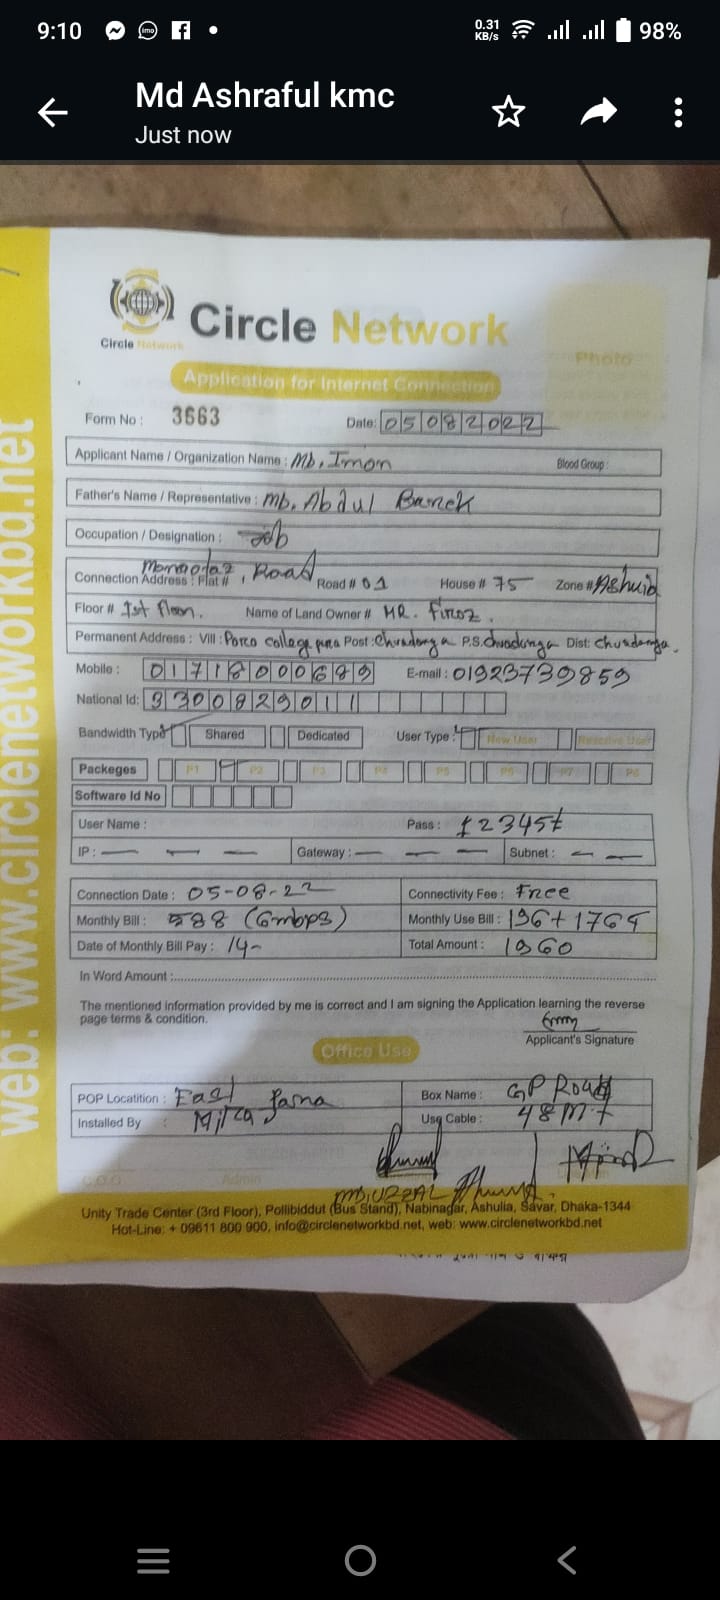 9:10
0.31 KB/s
98%
Md Ashraful kmc
Just now
Circle Network
Circle Network
Photo
Application for Internet Connection
Form No : 3663 Date: 05082022
Applicant Name / Organization Name : Md. Imon Blood Group :
Father's Name / Representative : Md. Abdul Barek
Occupation / Designation : Job
Connection Address : Flat # , Road Road # 01 House # 75 Zone #
Floor # 1st floor. Name of Land Owner # MR. Firoz.
Permanent Address : Vill : college para Post : Chuadanga P.S. Chuadanga Dist: Chuadanga.
Mobile : 01718000689 E-mail : 01923739859
National Id: 3300829011
Bandwidth Type Shared Dedicated User Type : New User Reseller User
Packeges P1 P2 P3 P4 P5 P6 P7 P8
Software Id No
User Name : Pass : 12345t
IP : — — — Gateway : — — — Subnet : — —
Connection Date : 05-08-22 Connectivity Fee : Free
Monthly Bill : 588 (6mbps) Monthly Use Bill : 196+1764
Date of Monthly Bill Pay : 14- Total Amount : 1960
In Word Amount :
The mentioned information provided by me is correct and I am signing the Application learning the reverse
page terms & condition.
Applicant's Signature
Office Use
POP Locatition : East Box Name : GP Road
Installed By : Use Cable : 48 Mt
C.O.O Admin
MD. UZZAL
Unity Trade Center (3rd Floor), Pollibiddut (Bus Stand), Nabinagar, Ashulia, Savar, Dhaka-1344
Hot-Line: + 09611 800 900, info@circlenetworkbd.net, web: www.circlenetworkbd.net
web: www.circlenetworkbd.net